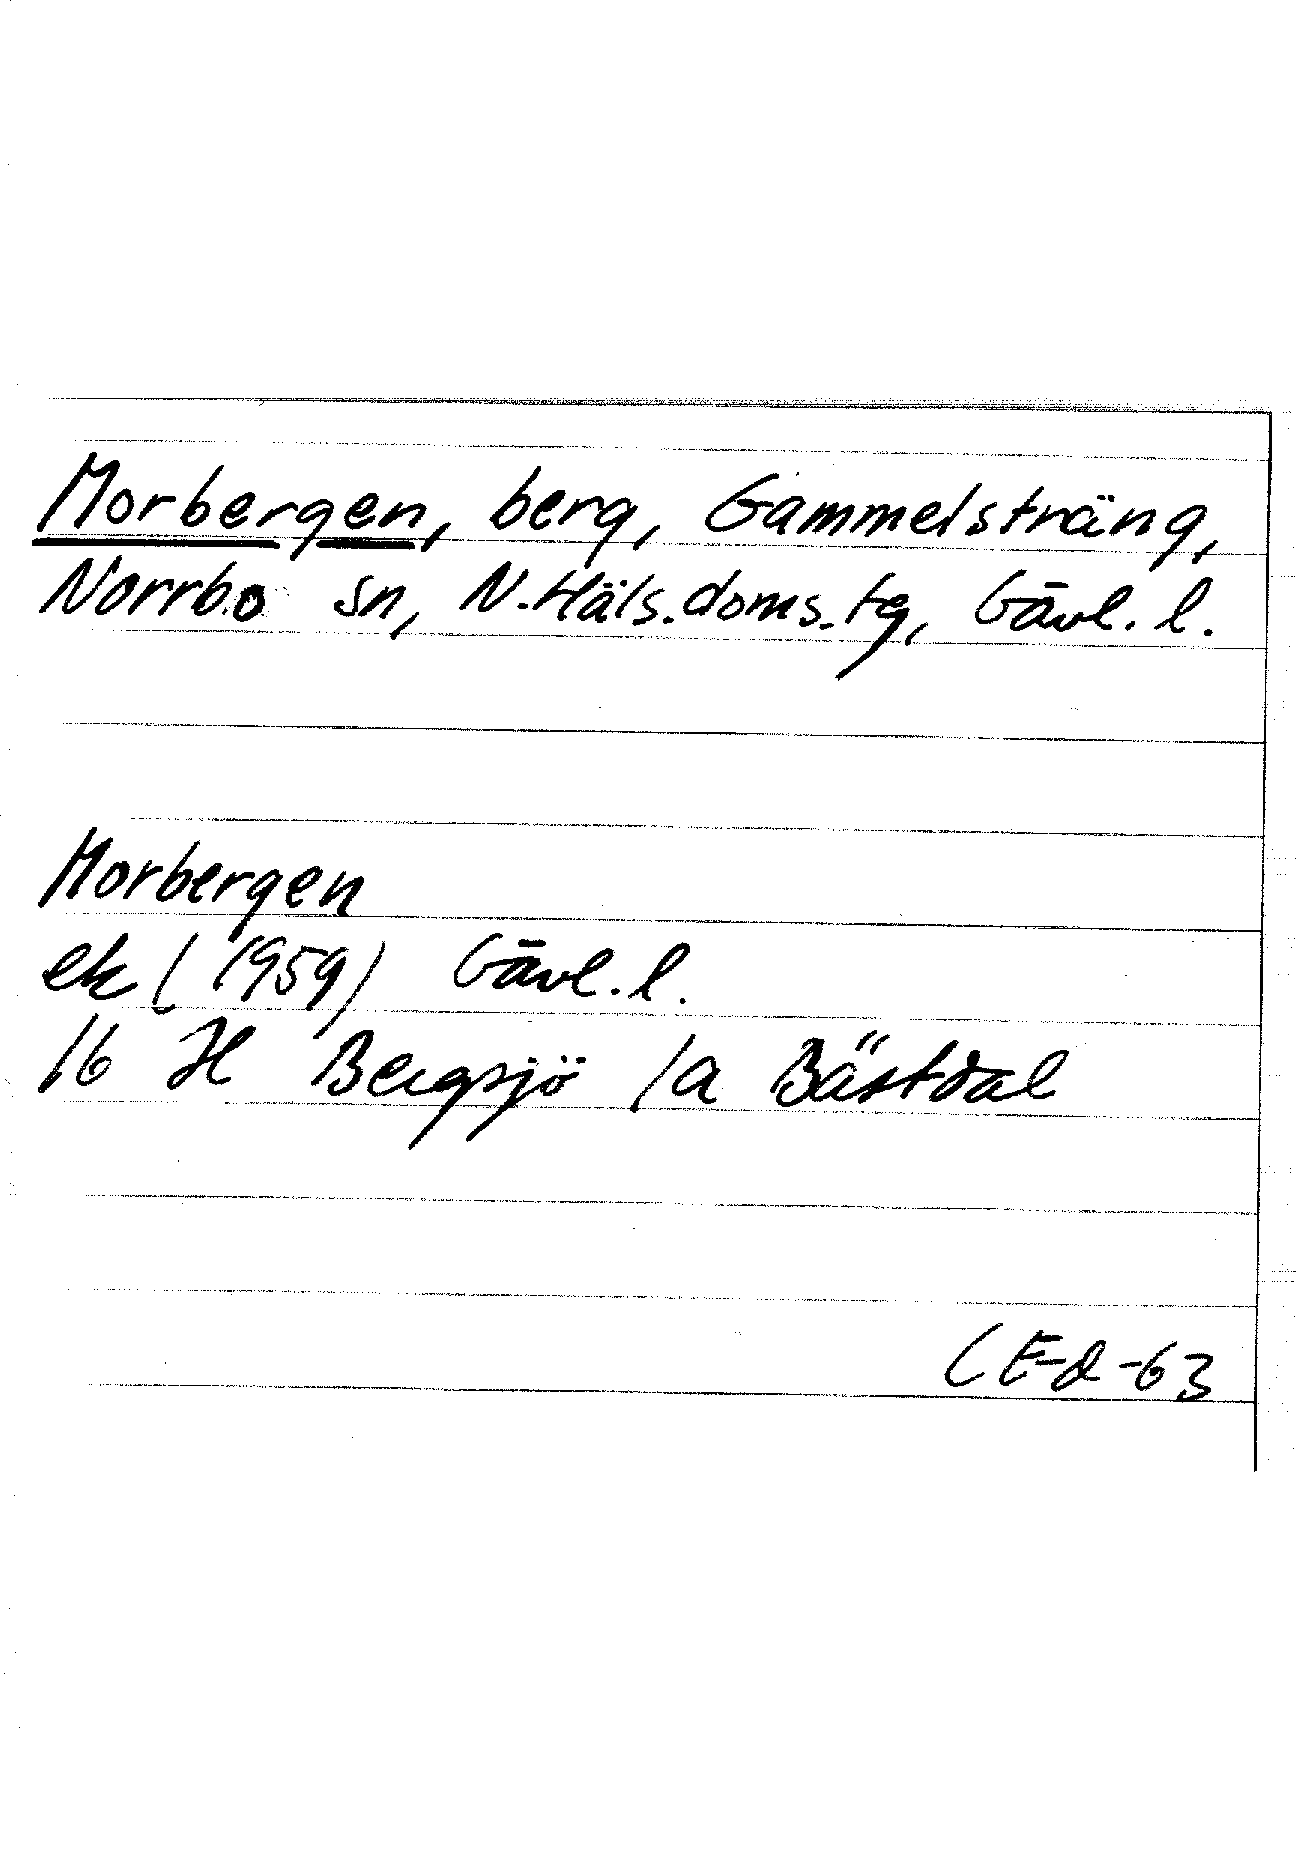 Morbergen, berg, Gammelsträng,
Norrbo sn, N. Häls. doms. tg, Gävl. l.
Morbergen
ek (1959) Gävl. l.
16 H Bergsjö 1a Bästdal
CE-d -63